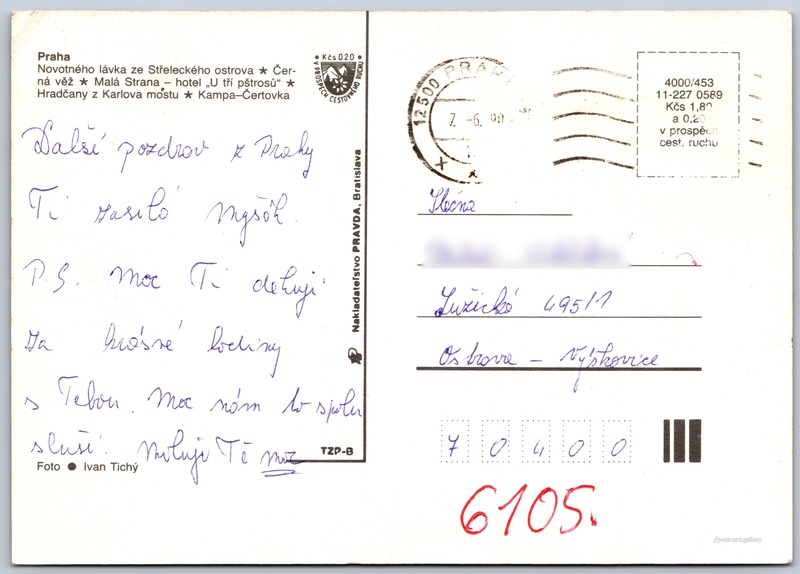 Praha
Novotného lávka ze Střeleckého ostrova ★ Čer-
ná věž ★ Malá Strana – hotel „U tří pštrosů" ★
Hradčany z Karlova mostu ★ Kampa–Čertovka
Kčs 0,20
V PROSPĚCH CESTOVNÍHO RUCHU
Další pozdrav z Prahy
Ti zasílá Myšák.
P.S. Moc Ti děkuji
za krásné hodiny
s Tebou. Moc nám to spolu
sluší. Miluji Tě moc
TZP-B
Foto ● Ivan Tichý
Nakladatelství PRAVDA, Bratislava
12500 PRAHA
7. -6. 90
4000/453
11-227 0589
Kčs 1,80
a 0,20
v prospěch
cest. ruchu
Slečna
Lužická 495/1
Ostrava – Výškovice
70400
6105.
postcard.gallery